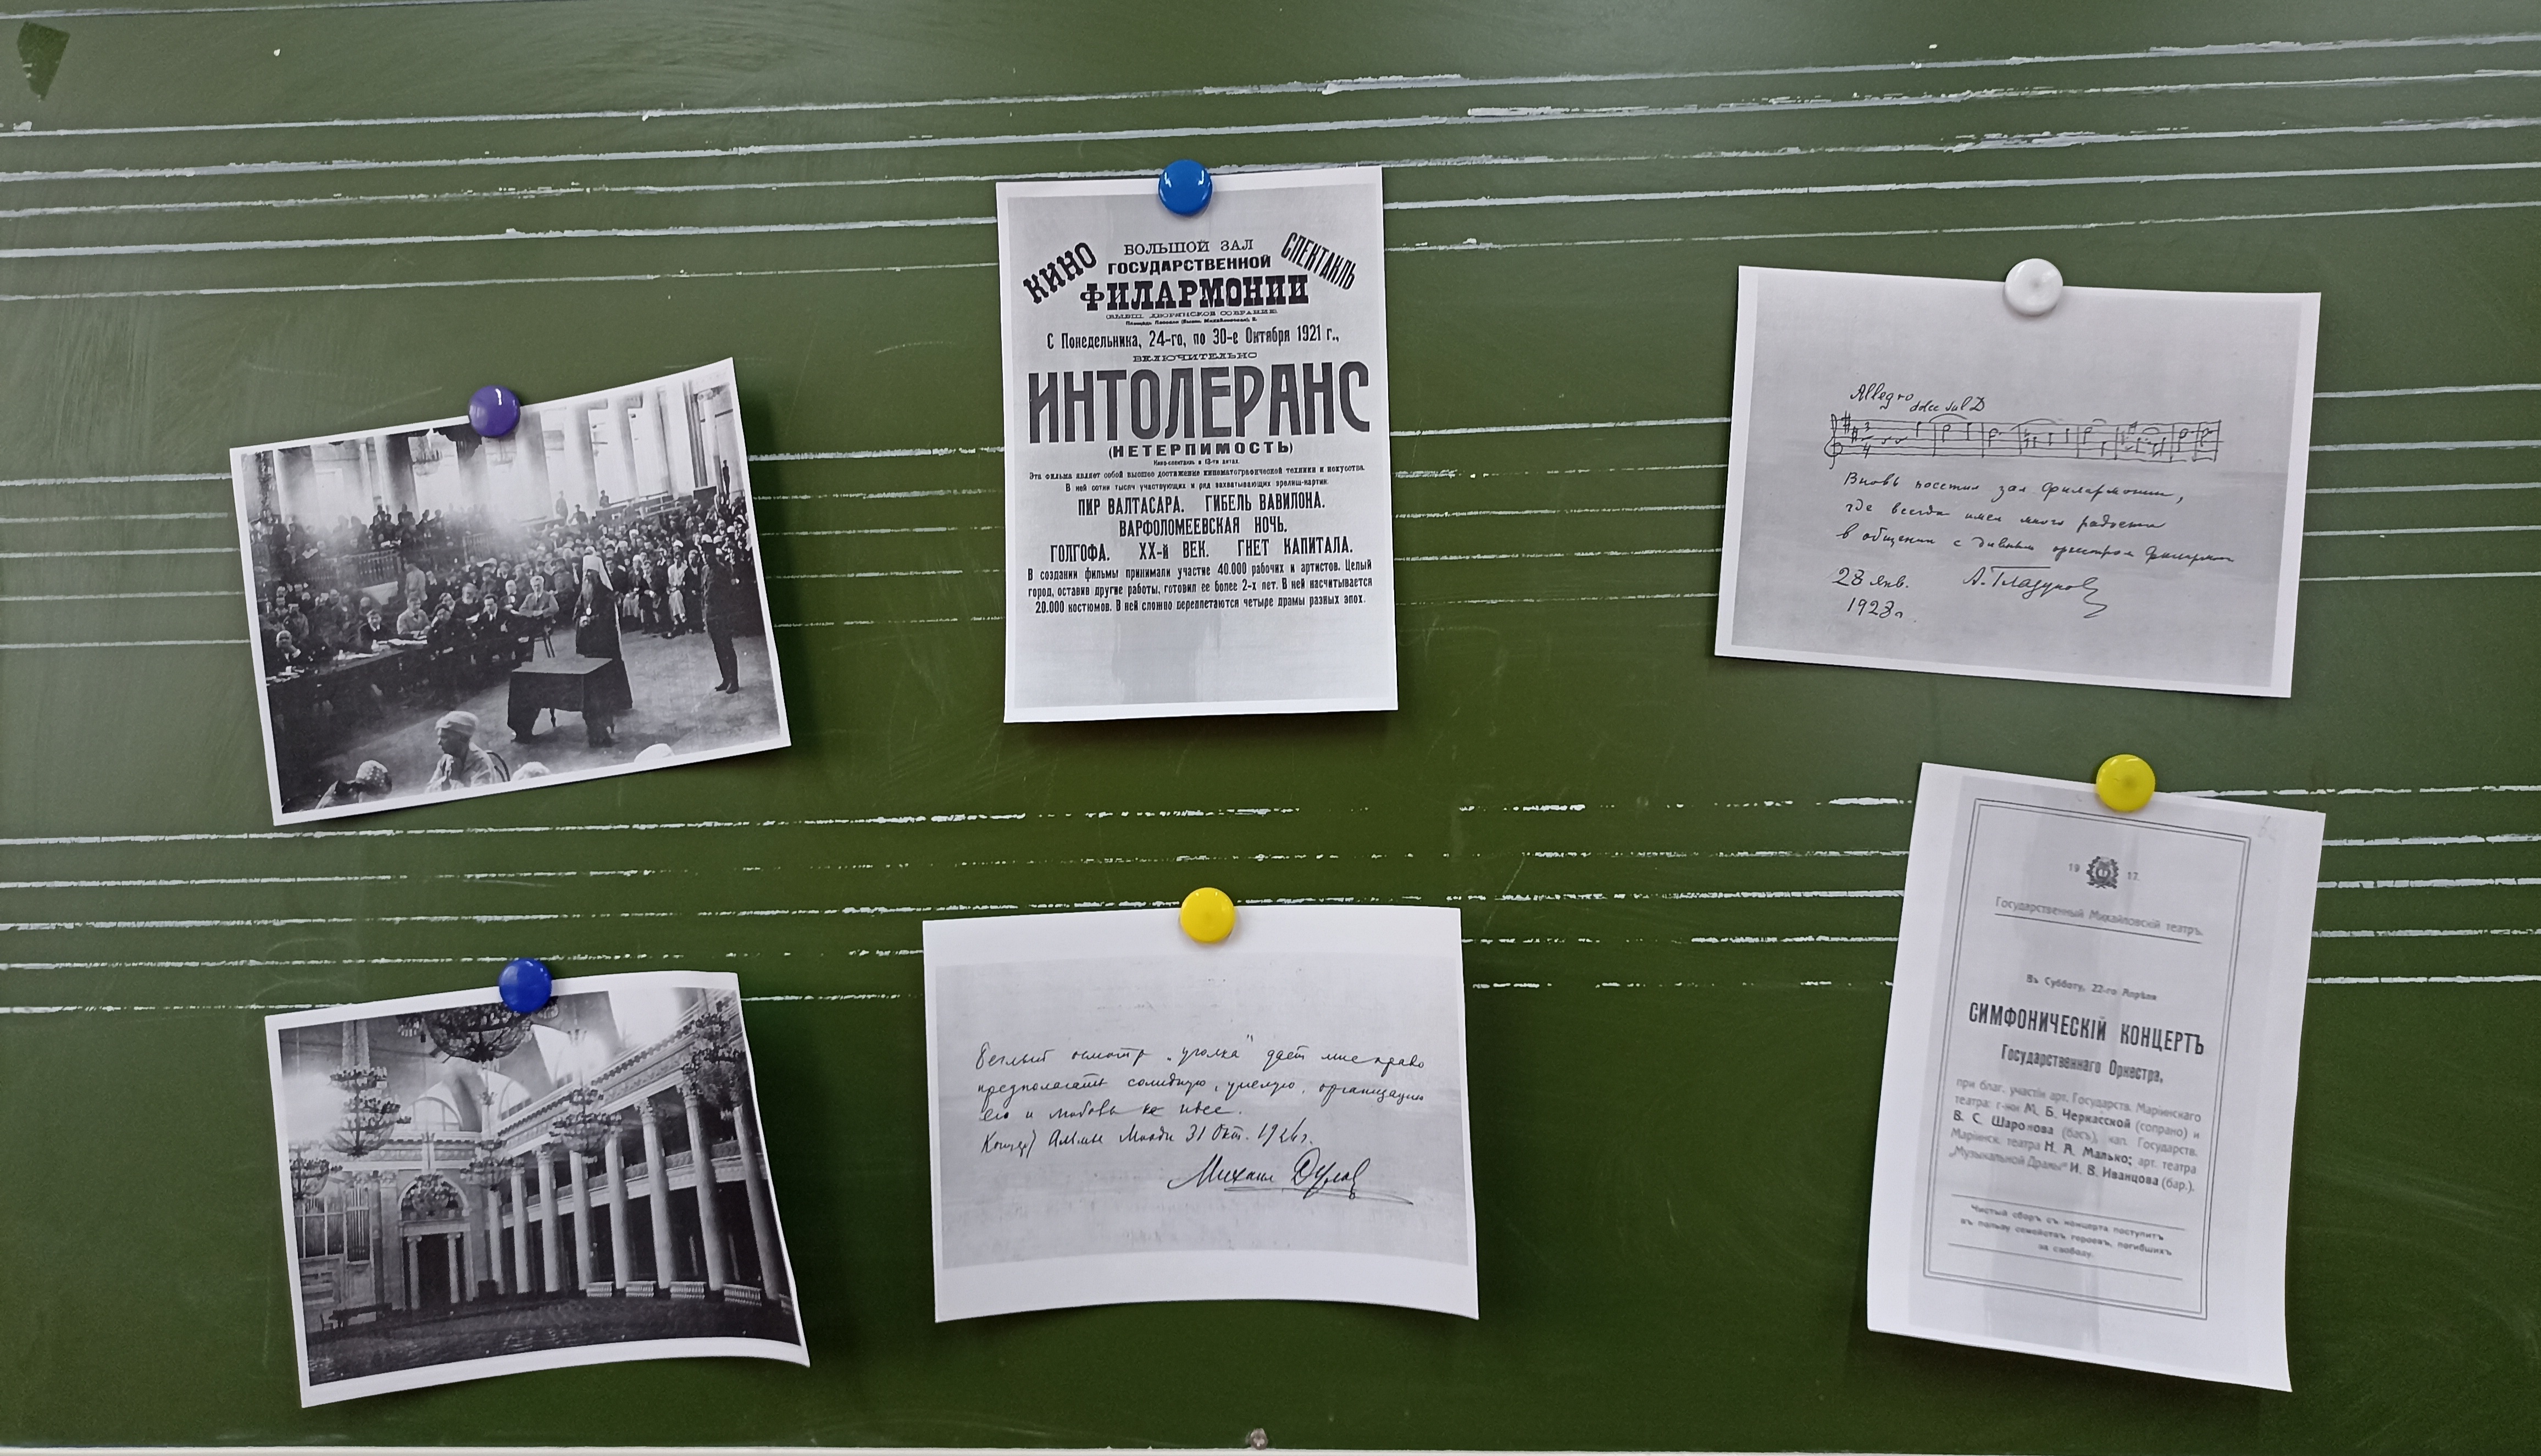 КИНО
СПЕКТАКЛЬ
БОЛЬШОЙ ЗАЛ
ГОСУДАРСТВЕННОЙ
ФИЛАРМОНИИ
(БЫВШ. ДВОРЯНСКОЕ СОБРАНИЕ)
С Понедельника, 24-го, по 30-е Октября 1921 г.,
ВКЛЮЧИТЕЛЬНО
ИНТОЛЕРАНС
(НЕТЕРПИМОСТЬ)
Кино-спектакль в 13-ти актах.
Эта фильма являет собой высшее достижение кинематографической техники и искусства.
В ней сотни тысяч участвующих и ряд захватывающих зрелищ-картин.
ПИР ВАЛТАСАРА. ГИБЕЛЬ ВАВИЛОНА.
ВАРФОЛОМЕЕВСКАЯ НОЧЬ.
ГОЛГОФА. XX-й ВЕК. ГНЕТ КАПИТАЛА.
В создании фильмы принимали участие 40.000 рабочих и артистов. Целый
город, оставив другие работы, готовил ее более 2-х лет. В ней насчитывается
20.000 костюмов. В ней сложно переплетаются четыре драмы разных эпох.
Allegro
dolce sul D
3
4
Вновь посетил зал филармонии,
где всегда имел много радости
в общении с дивным оркестром филармонии
28 янв.
1923 г.
А. Глазунов
Беглый осмотр „уголка" дает мне право
предполагать солидную, умелую, организацию
его и любовь к идее.
31 Окт. 1926 г.
Михаил
19 17.
Государственный Михайловскій театръ.
Въ Субботу, 22-го Апрѣля
СИМФОНИЧЕСКІЙ КОНЦЕРТЪ
Государственнаго Оркестра,
при благ. участіи арт. Государств. Маріинскаго
театра: г-жи М. Б. Черкасской (сопрано) и
В. С. Шаронова (басъ), кап. Государств.
Маріинск. театра Н. А. Малько; арт. театра
„Музыкальной Драмы" И. В. Иванцова (бар.).
Чистый сборъ съ концерта поступитъ
въ пользу семействъ героевъ, погибшихъ
за свободу.